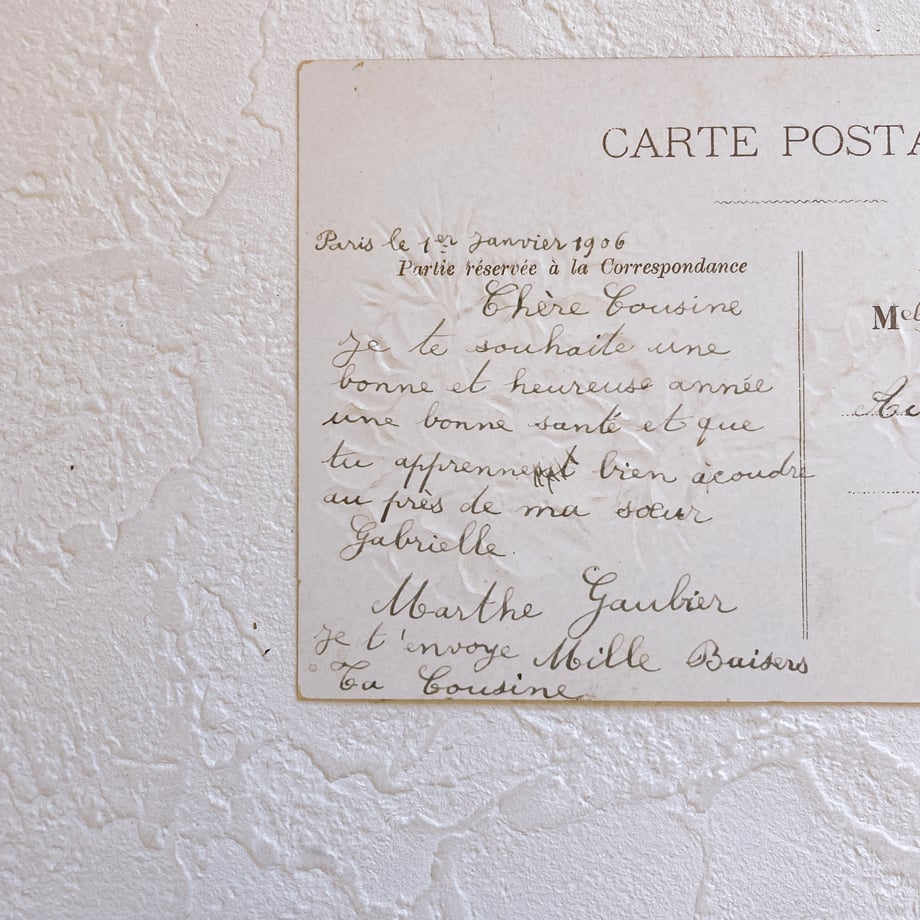 CARTE POSTA
Paris le 1er Janvier 1906
Partie réservée à la Correspondance
Chère Cousine
Je te souhaite une
bonne et heureuse année
une bonne santé et que
tu apprenne bien à coudre
au près de ma sœur
Gabrielle.
Marthe Gaubier
Je t'envoye Mille Baisers
Ta Cousine
Mel